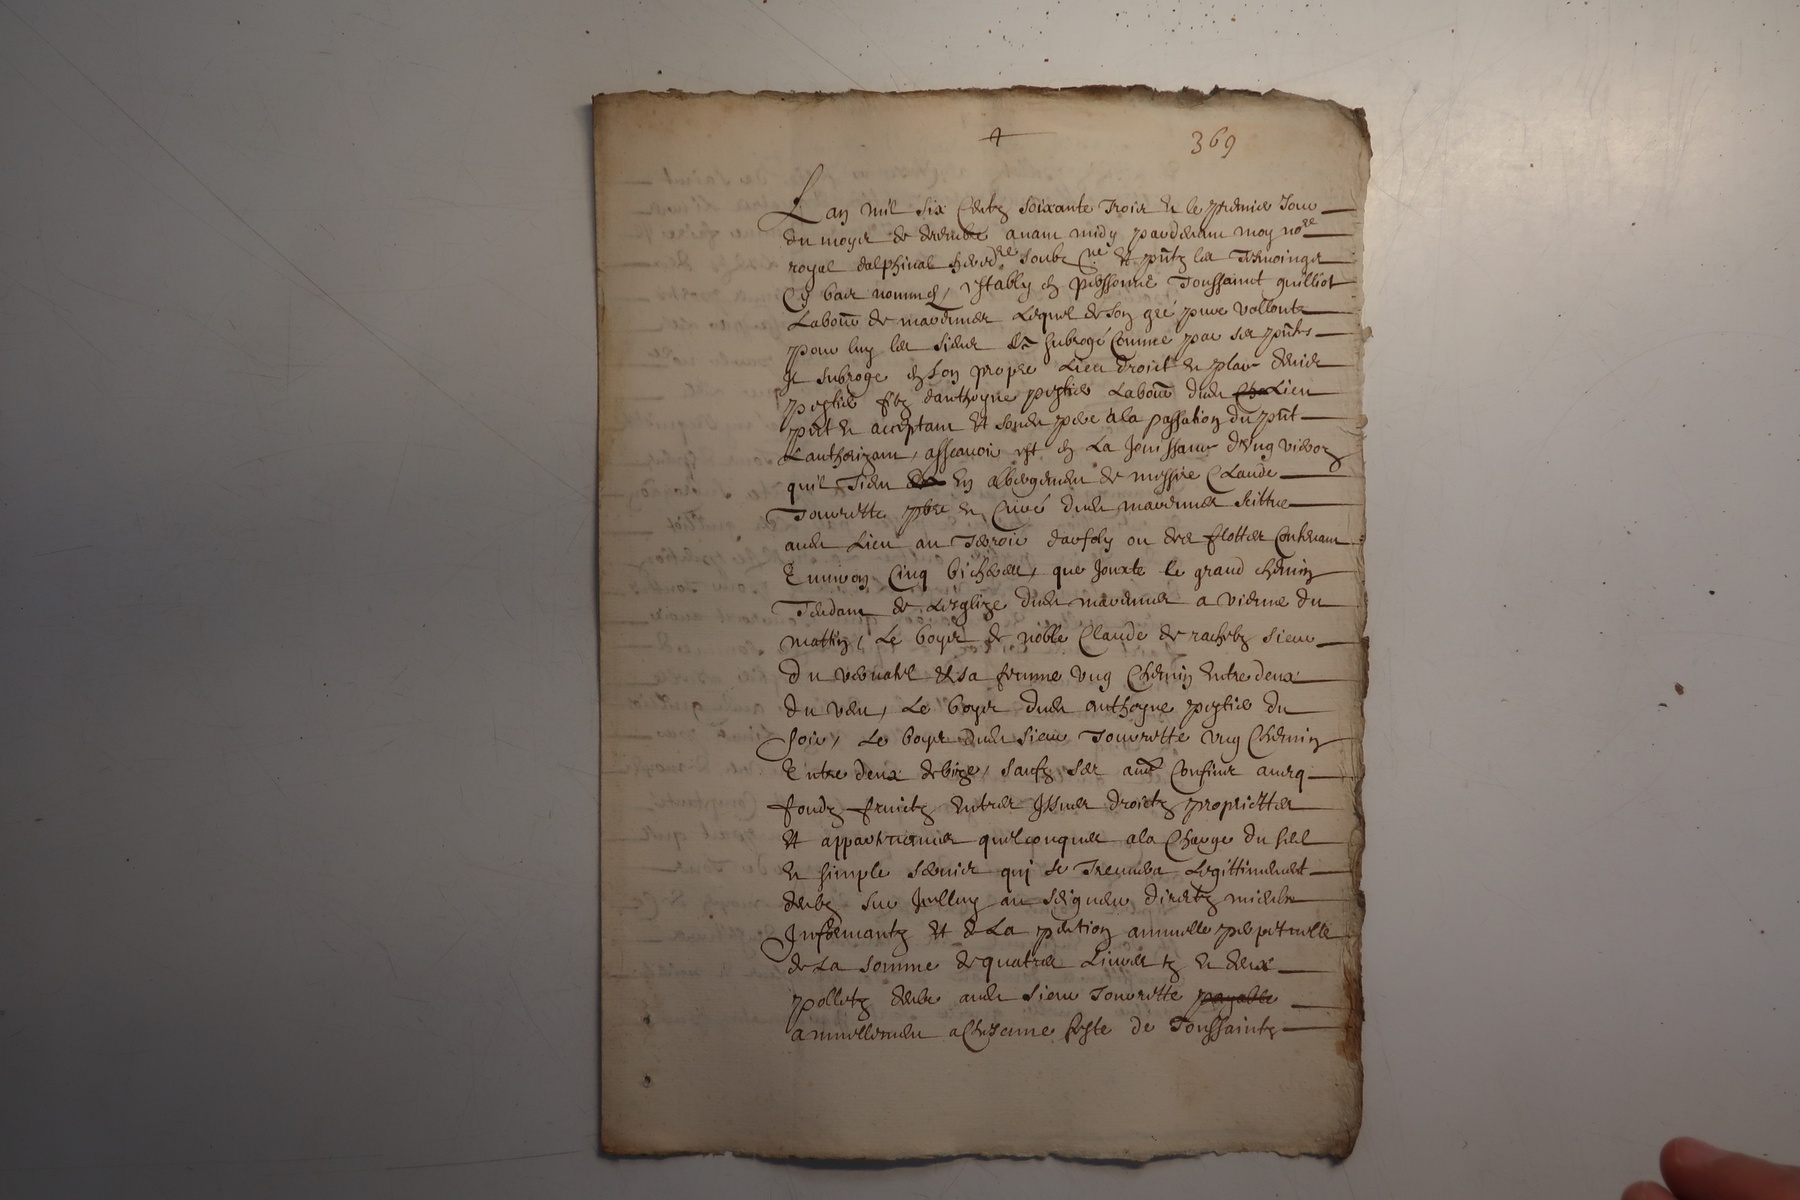 369
L an mil six Centz soixante Trois et le premier Jour
du moys de decembre avant midy pardevant moy no.re
royal dalphinal hered.re soubz.ne et pntz les Tesmoings
Cy bas nommes, estably en personne Toussainct quilliot
Labour de marennes Lequel de son gré pure vollonte
pour luy les siens subrogé Comme par ses pntes
Il subroge en son propre Lieu droict et place denis
filz danthoyne Labour dudit Lieu
pnt et acceptant et sondit pere a la passation du pnt
Lauthorizant, asscavoir est en La Jouissance dung
quil Tient En albergement de messire Claude
Tourette pbre et Curé dudit marennes scittue
audit Lieu au Terroir ou des flottes Contenant
Environ Cinq bicherees, que Jouxte le grand chemin
Tendant de Lesglize dudit marennes a vienne du
mattin, Le boys de noble Claude de rachetz sieur
du et sa femme ung Chemin Entre deux
du vent, Le boys dudit anthoyne du
soir, Le boys dudit sieur Tourette ung Chemin
Entre deux de bize, saufz ses aut.s Confins avecq
fondz fruictz Entrees Issues droictz propriettes
et appartenances quelconques a la Charge du
et simple servis qui se Treuvera Legittimement
debz sur Icelluy au seigneur directz
et de La pention annuelle perpetuelle
de La somme de quatre Livres tz et deux
polletz deube audit sieur Tourette payable
annuellement a Chescune feste de Toussaintz